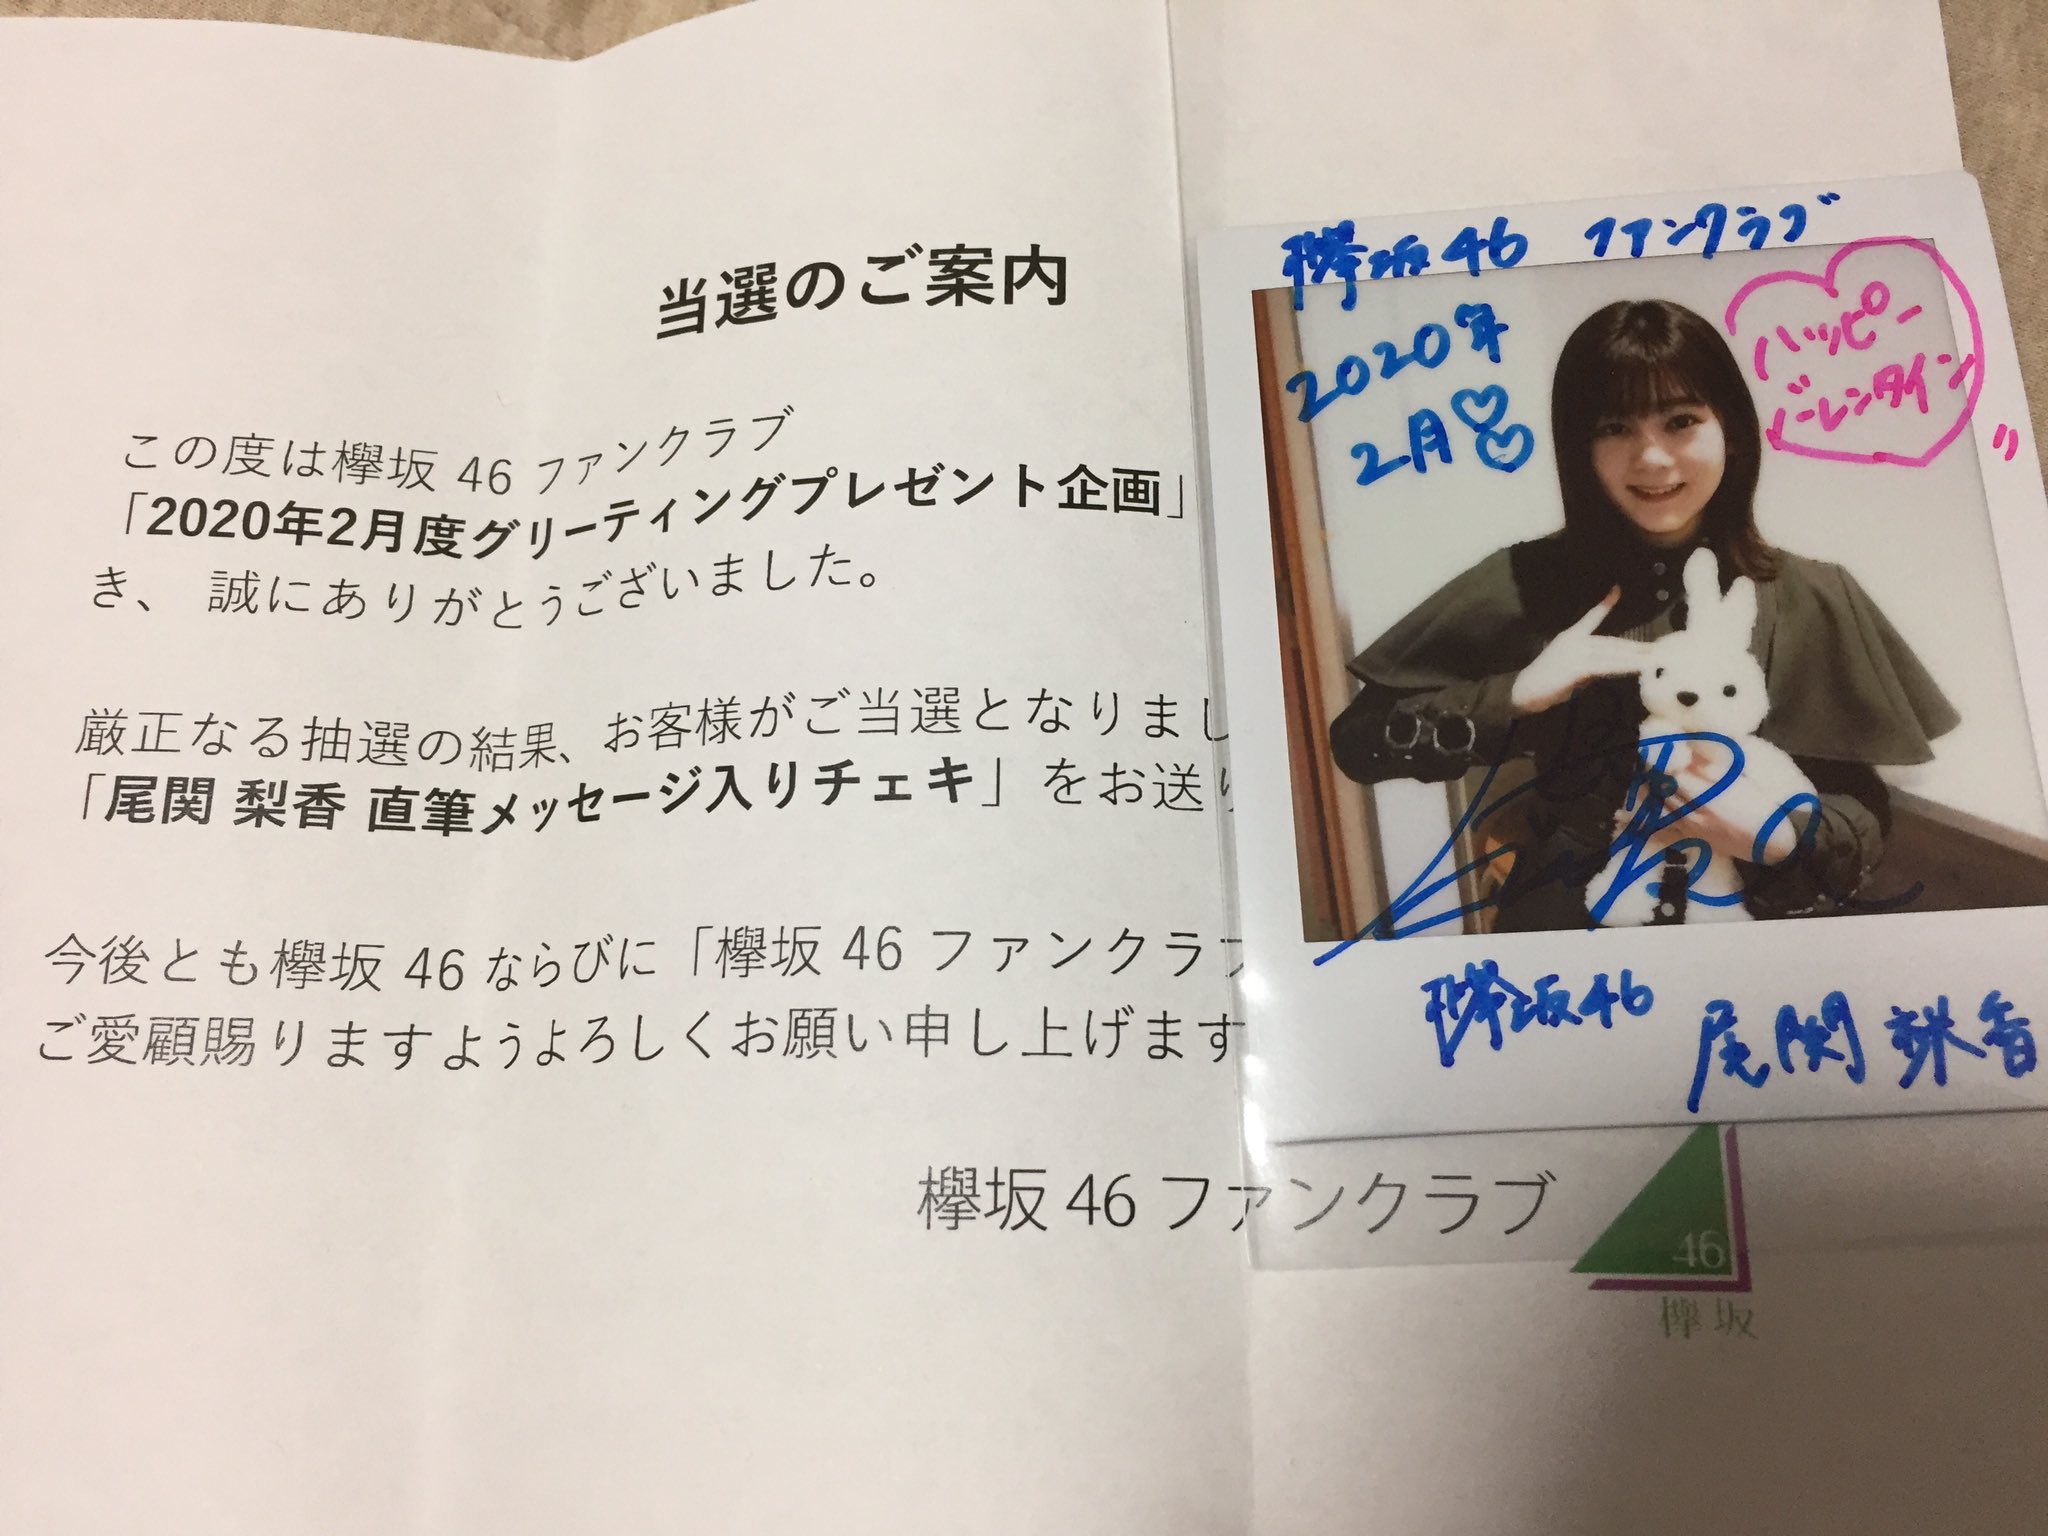 当選のご案内
この度は欅坂 46 ファンクラブ
「2020年2月度グリーティングプレゼント企画」
き、 誠にありがとうございました。
厳正なる抽選の結果、お客様がご当選となりまし
「尾関 梨香 直筆メッセージ入りチェキ」をお送り
今後とも欅坂 46 ならびに「欅坂 46 ファンクラブ
ご愛顧賜りますようよろしくお願い申し上げます
欅坂 46 ファンクラブ
46
欅坂
欅坂46 ファンクラブ
2020年
2月
ハッピー
バレンタイン
欅坂46 尾関 梨香